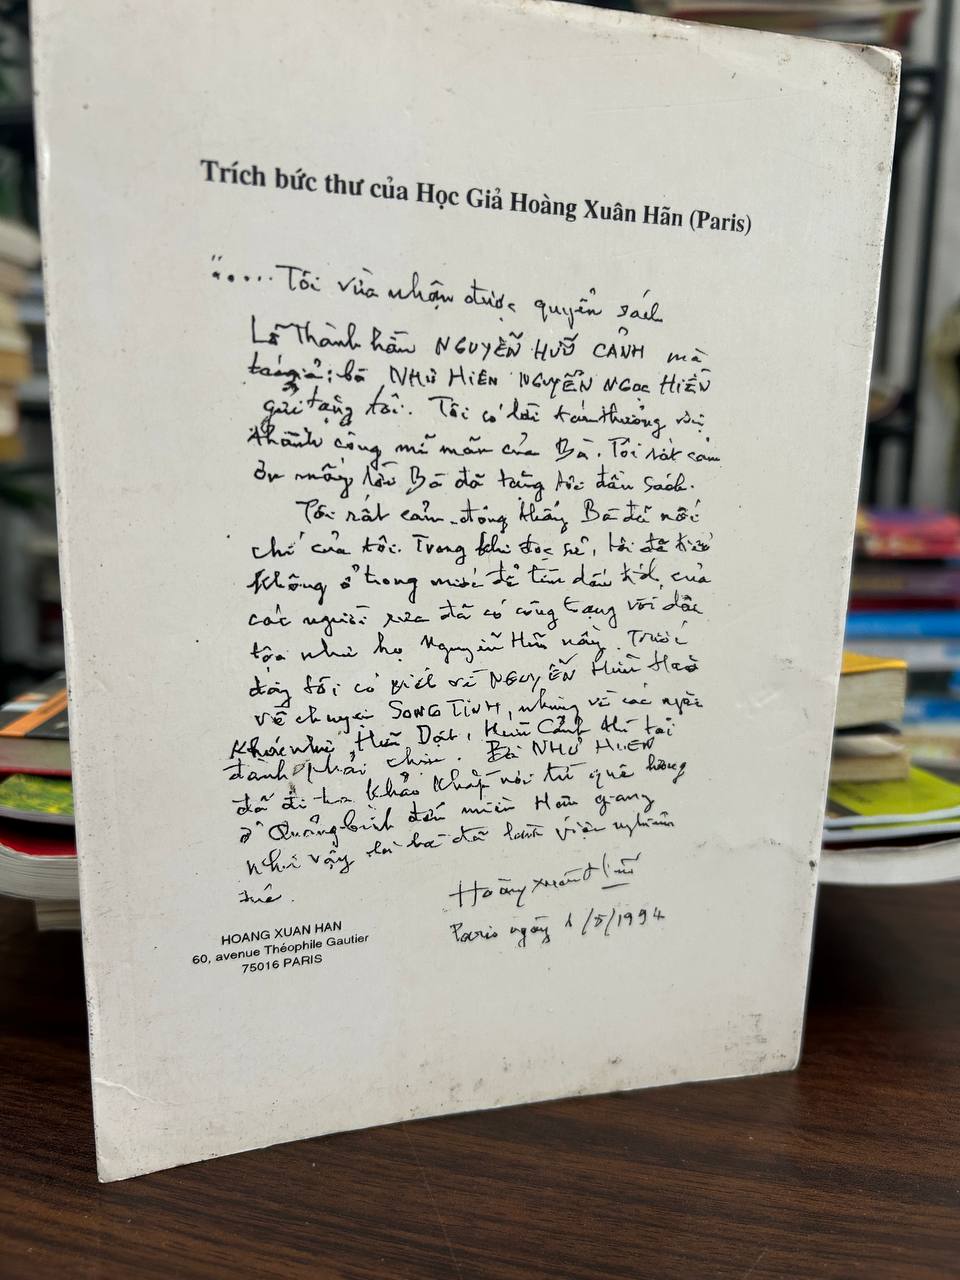 Trích bức thư của Học Giả Hoàng Xuân Hãn (Paris)
“.....Tôi vừa nhận được quyển sách
Lễ Thành hầu NGUYỄN HỮU CẢNH mà
tác giả: bà NHƯ HIÊN NGUYỄN NGỌC HIỀN
gửi tặng tôi. Tôi có lời tán thưởng sự
thành công mĩ mãn của Bà. Tôi rất cảm
ơn mấy lần Bà đã tặng tôi đầu sách.
Tôi rất cảm động thấy Bà đã nối
chí của tôi. Trong khi đọc sử, tôi đã
không ở trong nước để tìm dấu tích của
các người xưa đã có công trạng với dân
tộc như họ Nguyễn Hữu nầy. Trước
đây tôi có biết về NGUYỄN Hữu Hào
về chuyện SONG TINH, nhưng về các người
khác như Hữu Dật, Hữu Cảnh thì tôi
đành phải chịu. Bà NHƯ HIÊN
đã đi tra khảo khắp nơi từ quê hương
ở Quảng bình đến miền Hậu giang
như vậy là bà đã làm việc nghiêm
Hoàng Xuân Hãn
Paris ngày 1/5/1994
HOANG XUAN HAN
60, avenue Théophile Gautier
75016 PARIS